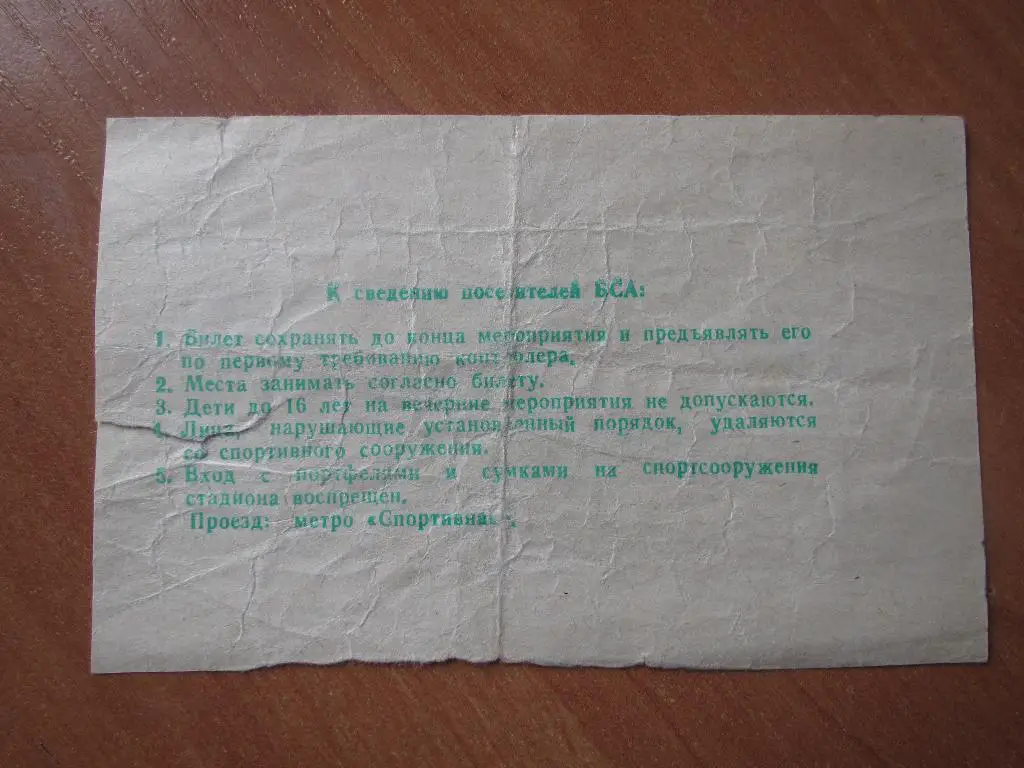 К сведению посетителей БСА:
1. Билет сохранять до конца мероприятия и предъявлять его
по первому требованию контролера.
2. Места занимать согласно билету.
3. Дети до 16 лет на вечерние мероприятия не допускаются.
4. Лица, нарушающие установленный порядок, удаляются
со спортивного сооружения.
5. Вход с портфелями и сумками на спортсооружения
стадиона воспрещен.
Проезд: метро «Спортивная».